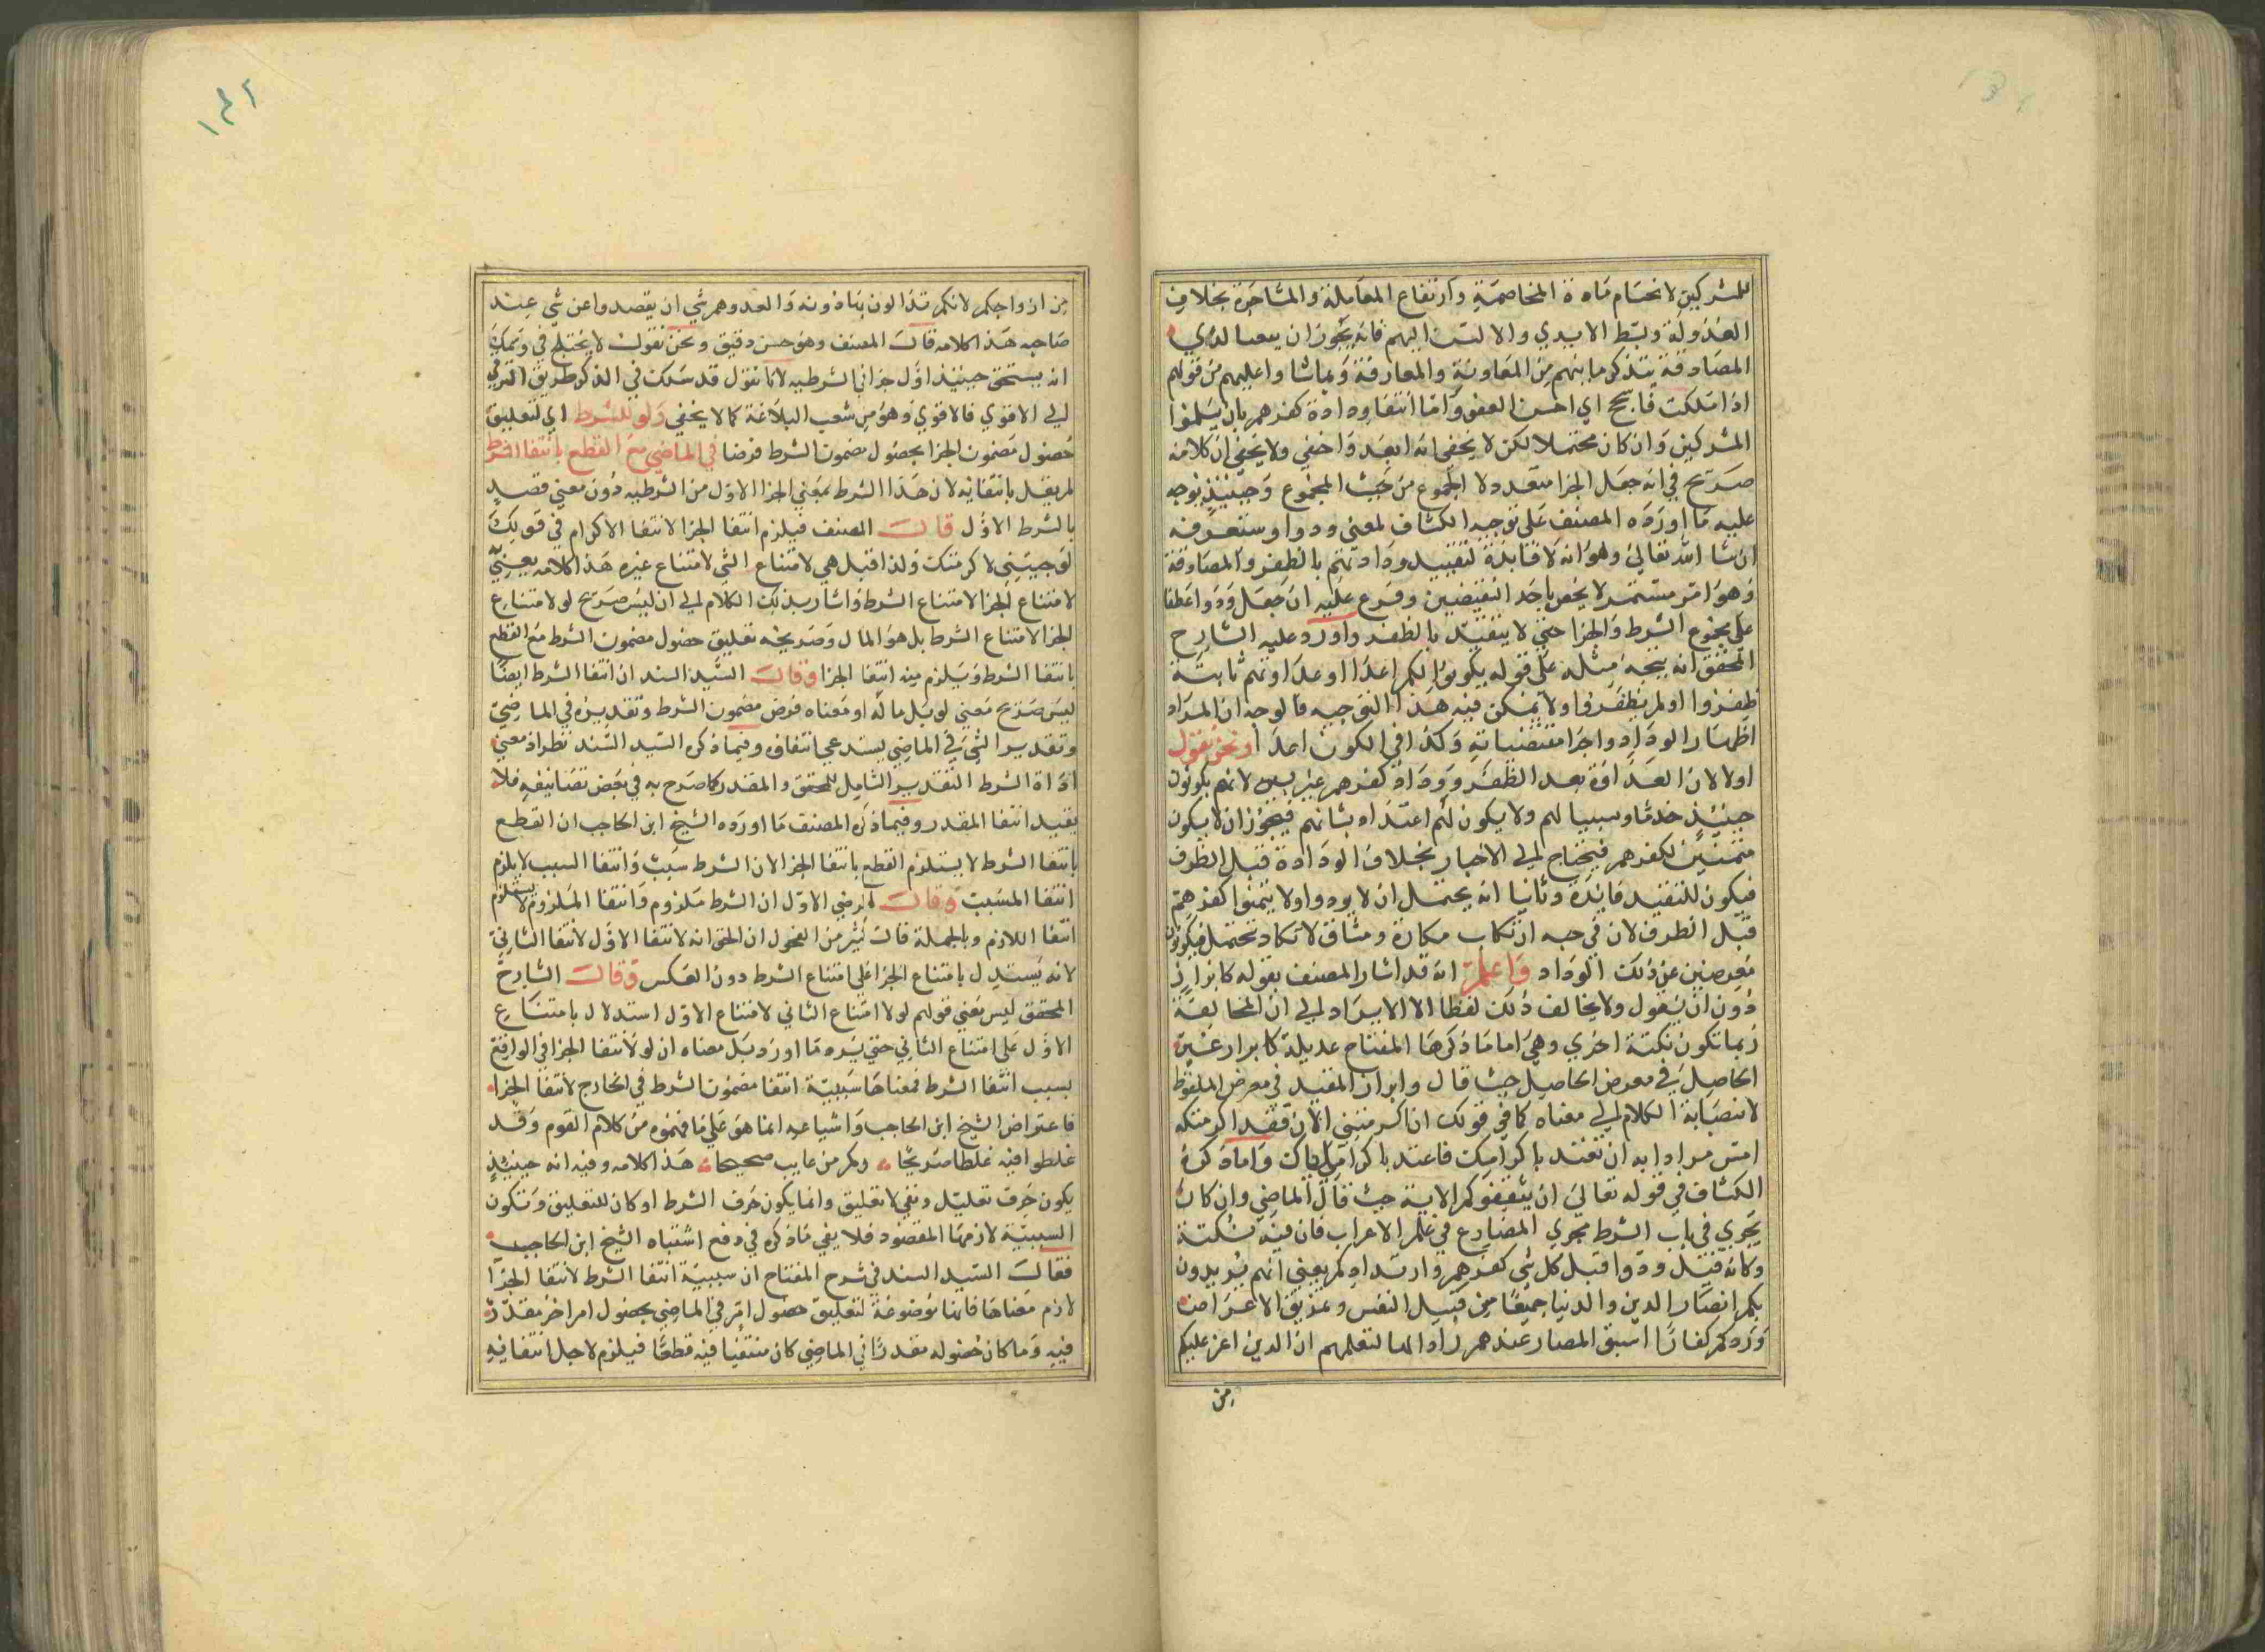 للمشركين لانحسام مادة المخاصمة وارتفاع المعاملة والمشاجرة بخلاف
العداوة وبسط الايدي والالسن اليهم فانه يجوز ان
المصادفة بتذكر ما بينهم من المعاونة والمعارفة وتماشوا عليهم من قولهم
اذا ملكت فاسجح اي احسن العفو واما انتفا ودادة كفرهم بان يسلموا
المشركين وان كان محتملا لكن لا يخفى انه ابعد واخفي ولا يخفى ان كلامه
صريح في انه جعل الجزا متعددا لا المجموع من حيث المجموع وحينئذ يوجه
عليه ما اورده المصنف على توجيه الكشاف لمعني ودوا وستعرفه
ان شا الله تعالى وهو انه لا فايدة لتقييد ودادتهم بالظفر والمصادفة
وهو امر مستمر لا يخص باحد النقيضين وفرع عليه ان جعل ودوا عطفا
على مجموع الشرط والجزا حتي لا يتقيد بالظفر واورد عليه الشارح
المحقق انه يتجه مثله على قوله يكونوا لكم اعدا اذ عداوتهم ثابتة
ظفروا او لم يظفروا ولا يمكن فيه هذا التوجيه فالوجه ان المراد
اظهار الوداد واجرا مقتضياته وكذا في الكون اعدا ونحن نقول
اولا لان العداوة بعد الظفر وودادة كفرهم غير بين لانهم يكونون
حينئذ خدما وسبيا لهم ولا يكون لهم اعتداد بشانهم فيجوز ان لا يكون
متمنين لكفرهم فيحتاج الي الاخبار بخلاف الودادة قبل الظرف
فيكون للتقييد فايدة وثانيا انه يحتمل ان لا يودوا ولا يتمنوا كفرهم
قبل الظرف لان في حبه ارتكاب مكاره ومشاق لا تكاد تحتمل فيكونون
معرضين عن ذلك الوداد واعلم انه قد اشار المصنف بقوله كابراز
دون ان يقول ولا يخالف ذلك لفظا الا لايراد الي ان المخالفة
ربما تكون نكتة اخري وهي اما ما ذكرها المفتاح عديلة كابراز غير
الحاصل في معرض الحاصل حيث قال وابراز المقيد في معرض الملفوظ
لانصبابة الكلام الي معناه كما في قولك ان اكرمتني الان فقد اكرمتك
امس مرادا به ان تعتد باكرامك فاعتد باكرامي اياك واما ما ذكره
الكشاف في قوله تعالى ان يثقفوكم الاية حيث قال الماضي وان كان
يجري في باب الشرط مجري المضارع في علم الاعراب فان فيه نكتة
وكانه قيل ودوا قبل كل شي كفرهم وارتدادكم يعني انهم يريدون
بكم انصار الدين والدنيا جميعا من قتيل النفس وتمزيق الاعراض
وردكم كفارا اسبق المصار عندهم واولها لتعلمهم ان الدين اعز عليكم
من
١٣٢
من ازواجكم لانكم تذالون بهادونه والعدو همه شي ان يقصدوا عن شي عند
صاحبه هذا كلامه قال المصنف وهو حسن دقيق ونحن نقول لا يختلج في وهمك
انه يستحق حينئذ اول جزاي الشرطيه لانا نقول قد سلكت في الذكر طريق الترقي
الي الاقوي فالاقوي وهو من شعب البلاغة كما لا يخفي ولو للشرط اي لتعليق
حصول مضمون الجزا بحصول مضمون الشرط فرضا في الماضي مع القطع بانتفا الشرط
لم يقل بانتفايه لان هذا الشرط بمعني الجزا الاول من الشرطيه دون معني قصد
بالشرط الاول قال المصنف فيلزم انتفا الجزا لانتفا الاكرام في قولك
لو جيتني لاكرمتك ولذا قيل هي لامتناع الشي لامتناع غيره هذا كلامه يعني
لامتناع الجزا لامتناع الشرط واشار بذلك الكلام الي ان ليس صريح لو لامتناع
الجزا لامتناع الشرط بل هو المال وصريحه تعليق حصول مضمون الشرط مع القطع
بانتفا الشرط ويلزم منه انتفا الجزا وقال السيد السند ان انتفا الشرط ايضا
ليس صريح معني لو بل ماله او معناه فرض مضمون الشرط وتقديره في الماضي
وتقدير الشي في الماضي يستدعي انتفاه وفيما ذكره السيد السند نظر اذ معني
اداة الشرط التقدير الشامل للمحقق والمقدر كما صرح به في بعض تصانيفه فلا
يفيد انتفا المقدر وفيما ذكره المصنف ما اورده الشيخ ابن الحاجب ان القطع
بانتفا الشرط لا يستلزم القطع بانتفا الجزا لان الشرط سبب وانتفا السبب لا يلزم
انتفا المسبب وقال الرضي الاول ان الشرط ملزوم وانتفا الملزوم لا يستلزم
انتفا اللازم وبالجملة قال كثير من الفحول ان الحق انه لانتفا الاول لانتفا الثاني
لانه يستدل بامتناع الجزا على امتناع الشرط دون العكس وقال الشارح
المحقق ليس يعني قولهم لو لامتناع الثاني لامتناع الاول استدلال بامتناع
الاول على امتناع الثاني حتي يرد ما اورد بل معناه ان لو لانتفا الجزا في الواقع
بسبب انتفا الشرط فمعناها سببية انتفا مضمون الشرط في الخارج لانتفا الجزا
فاعتراض الشيخ ابن الحاجب واشياعه انما هو على ما فهموه من كلام القوم وقد
غلطوا فيه غلطا صريحا وكم من عايب صحيحا هذا كلامه وفيه انه حينئذ
يكون حرف تعليل ونفي لا تعليق وانما يكون حرف الشرط لو كان للتعليق وتكون
السببية لازمها المقصود فلا يفي ما ذكره في دفع اشتباه الشيخ ابن الحاجب
فقال السيد السند في شرح المفتاح ان سببية انتفا الشرط لانتفا الجزا
لازم معناها فانها موضوعة لتعليق حصول امر في الماضي بحصول امر اخر مقدر
فيه وما كان حصوله مقدرا في الماضي كان منتفيا فيه قطعا فيلزم لاجل انتفايه